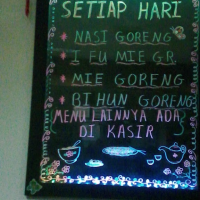 SETIAP HARI
NASI GORENG
I FU MIE G.R.
MIE GORENG
BIHUN GORENG
MENU LAINNYA ADA
DI KASIR